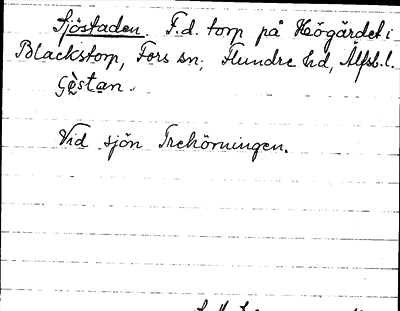 Sjöstaden. F.d. torp på Högärdet i
Blackstorp, Fors sn, Flundre hd, Älfsb. l.
Vid sjön Trehörningen.